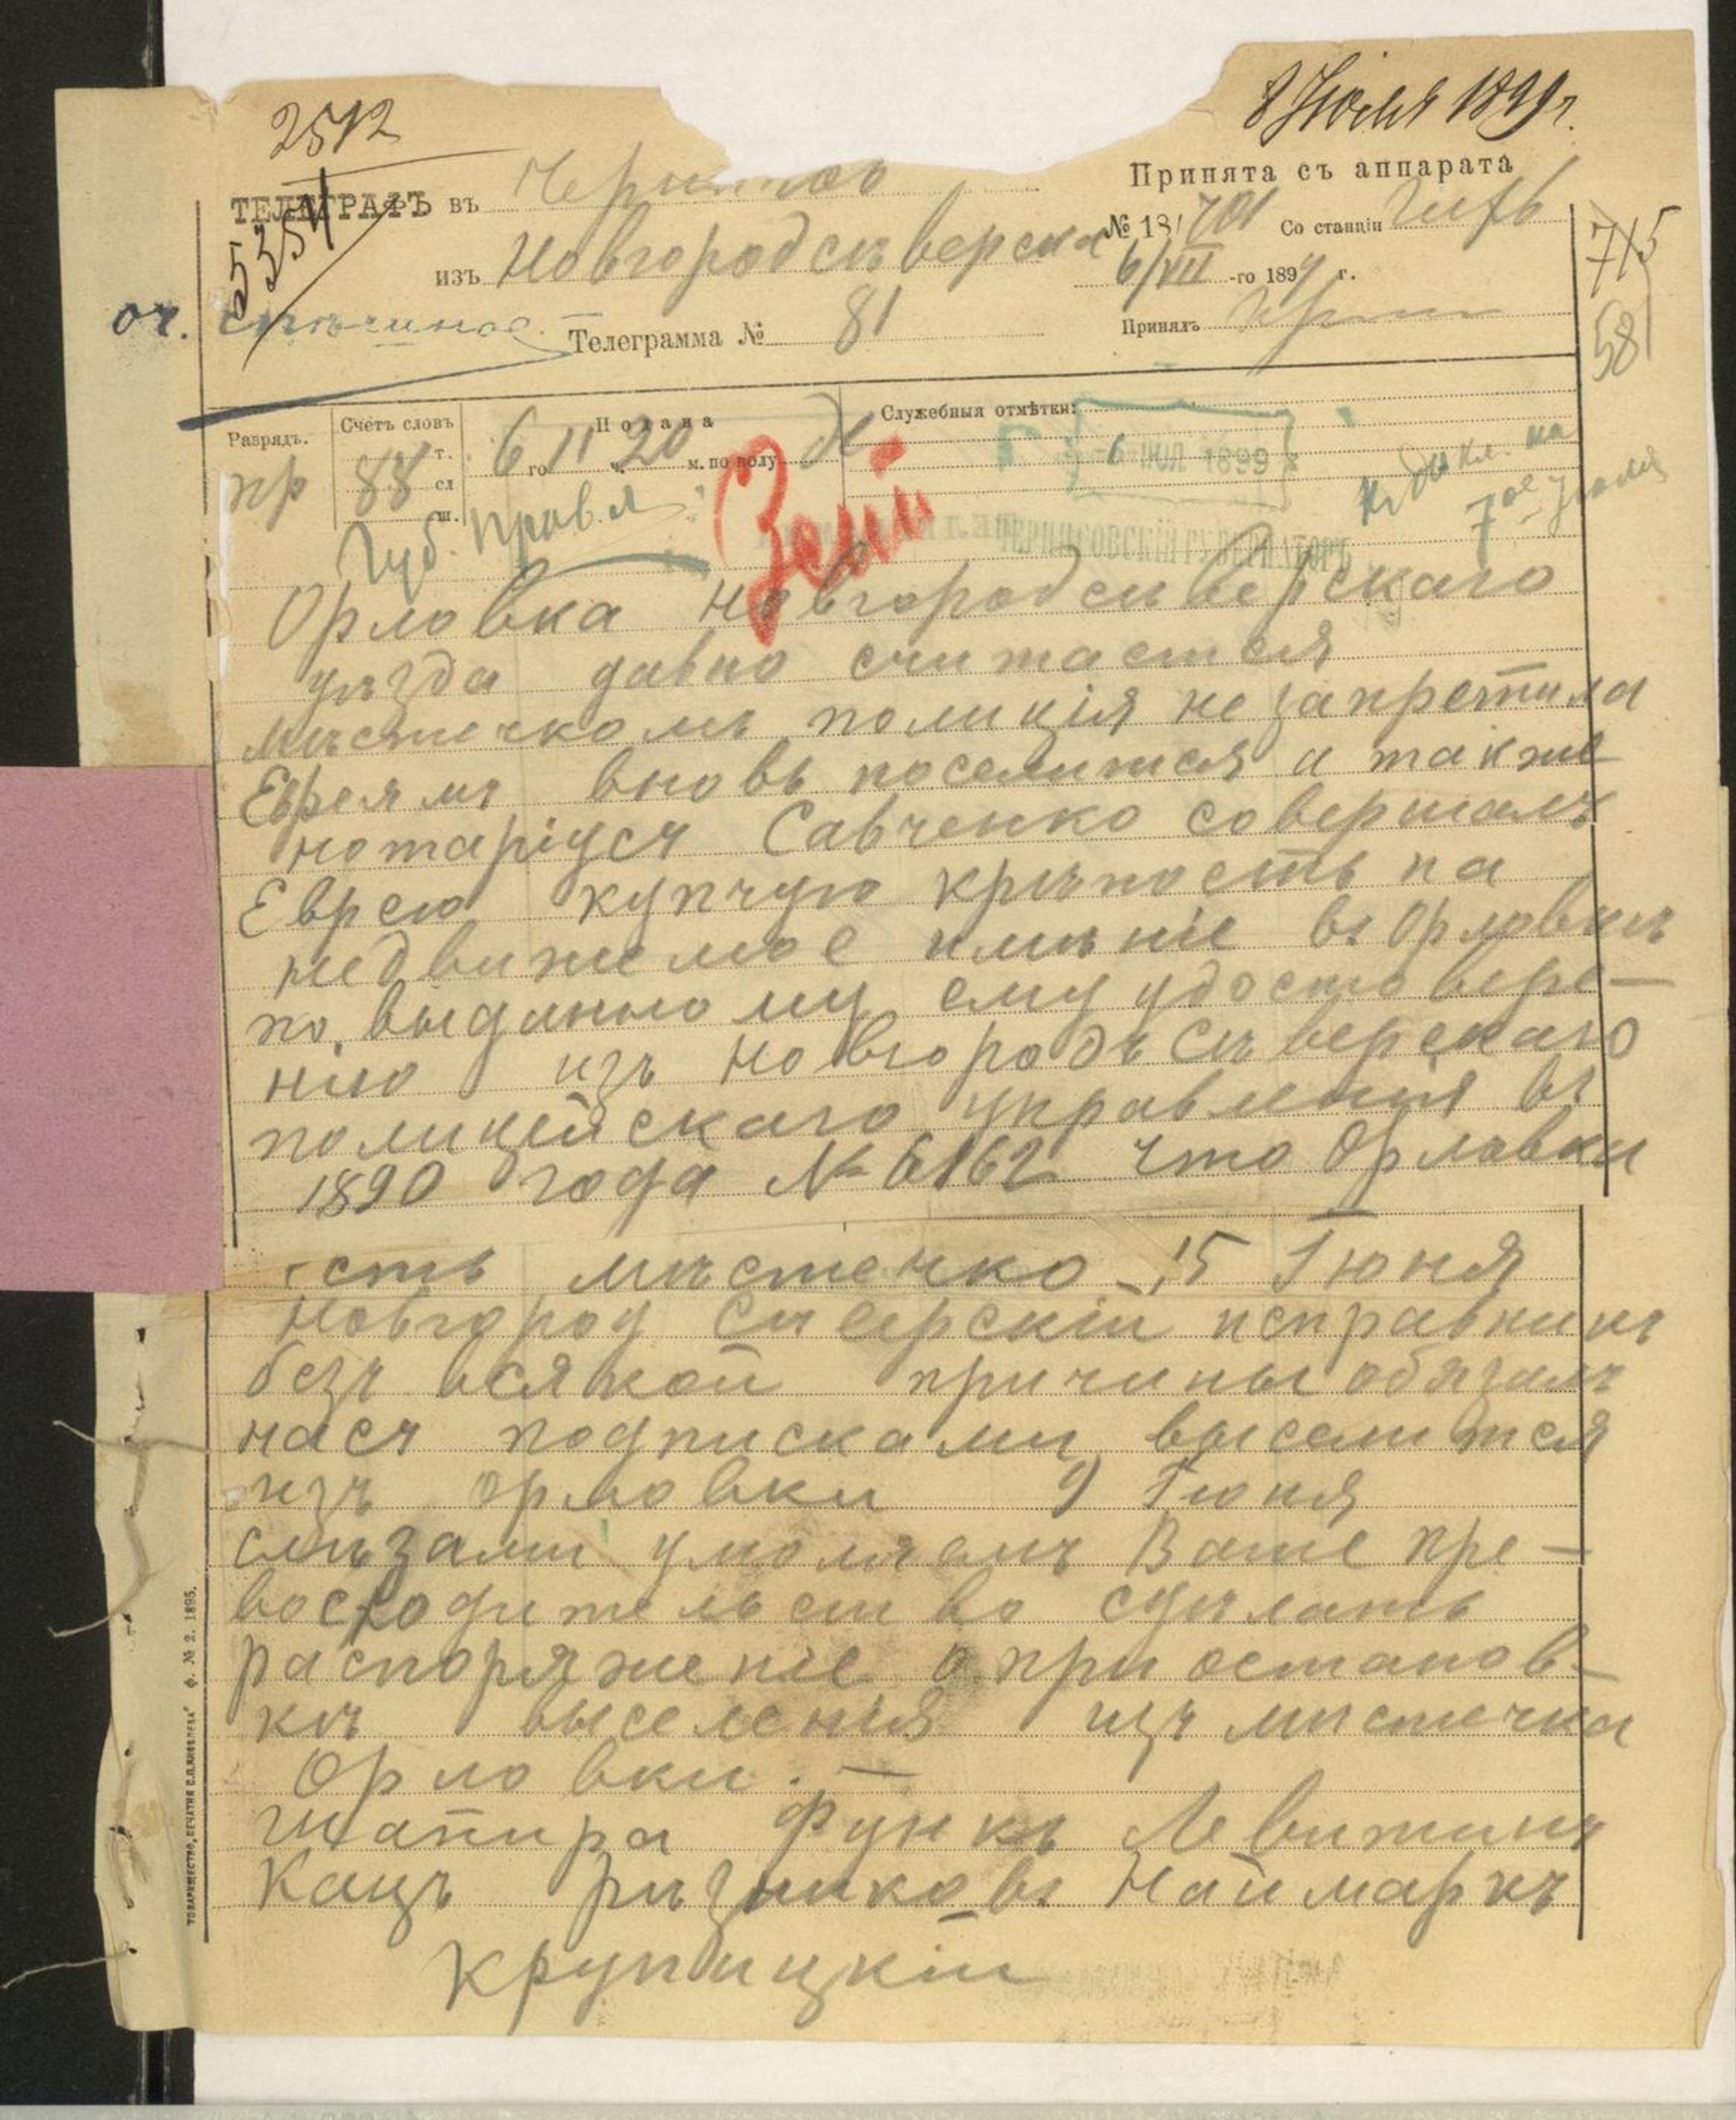 8 Июля 1899 г.
2512
5354
ТЕЛЕГРАФЪ въ Чернигов
Принята съ аппарата
№ 18 701 Со станціи
изъ Новгородсѣверска
6/VII -го 1899 г.
715
58
оч. спѣшное
Телеграмма № 81
Принялъ
Разрядъ.
Счетъ словъ
Подана
Служебныя отмѣтки:
пр 88 т. сл ш.
6 го 11 ч. 20 м. по полу
6 ИЮЛ 1899
къ докл. на
7ое Июля
Губ. Правл.
ЧЕРНИГОВСКІЙ ГУБЕРНАТОРЪ
Орловка Новгородсѣверскаго
уѣзда давно считается
мѣстечкомъ полиція не запретила
Евреямъ вновь поселитися а также
нотаріусъ Савченко совершалъ
Еврею купчую крѣпость на
недвижимое имѣніе въ Орловкѣ
по выданному ему удостовѣре-
нію изъ Новгородъ Сѣверскаго
полицейскаго управленія въ
1890 года № 6162 что Орловка
есть мѣстечко 15 Іюня
Новгород Сѣверскій исправникъ
безъ всякой причины обязалъ
насъ подписками выселитися
изъ Орловки 9 Іюня
слѣзами умоляемъ Ваше пре-
восходительство сдѣлать
распоряженіе о пріостанов-
кѣ выселенія изъ мѣстечка
Орловки. —
Шапира Функъ Левитинъ
Кацъ Рѣзниковъ Наймаркъ
Крупицкій
ТОВАРИЩЕСТВО „ПЕЧАТНЯ С.П.ЯКОВЛЕВА“ ф. № 2. 1895.